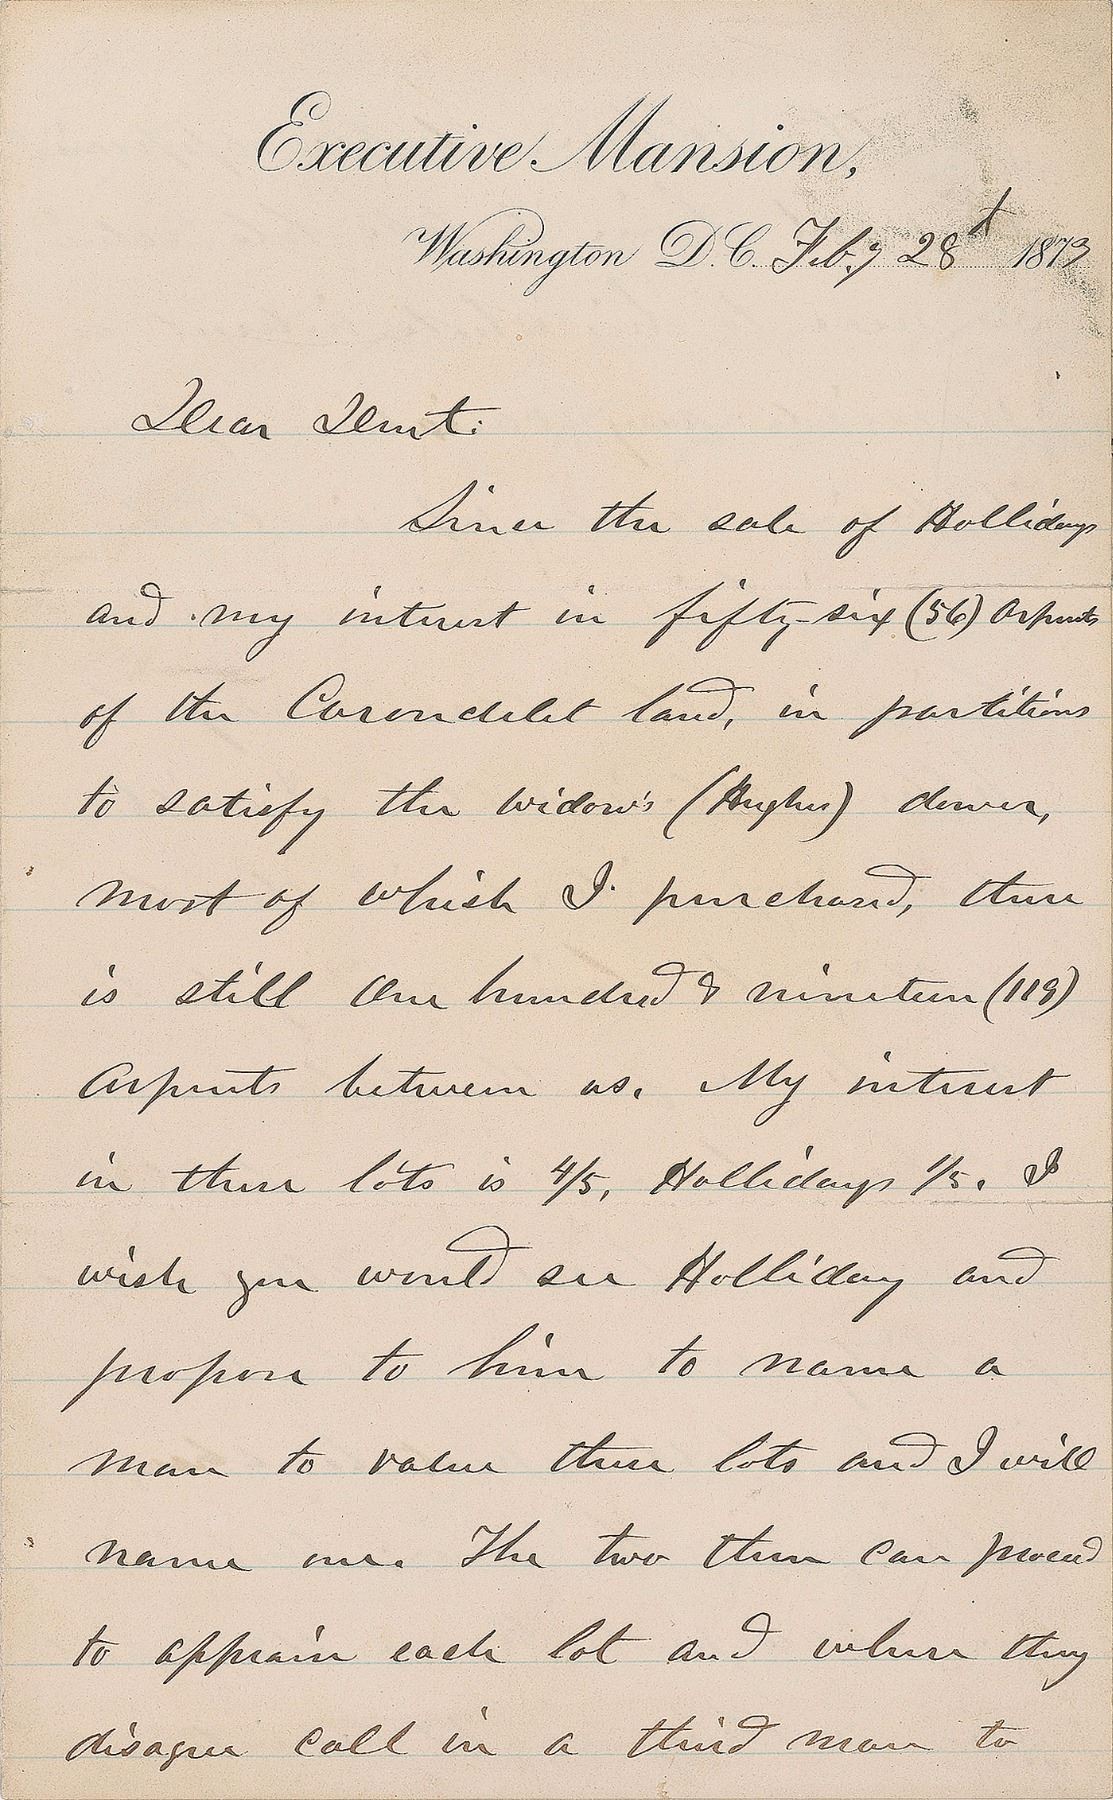 Executive Mansion,
Washington D.C. Feb.y 28t 1873
Dear Dent:
Since the sale of Hollidays
and my interest in fifty-six (56) Arpents
of the Carondelet land, in partitions
to satisfy the widow's (Hughes) dower,
most of which I purchased, there
is still One hundred & nineteen (119)
Arpents between us. My interest
in these lots is 4/5, Hollidays 1/5. I
wish you would see Holliday and
propose to him to name a
man to value these lots and I will
name one. The two then can proceed
to appraise each lot and where they
disagree call in a third man to